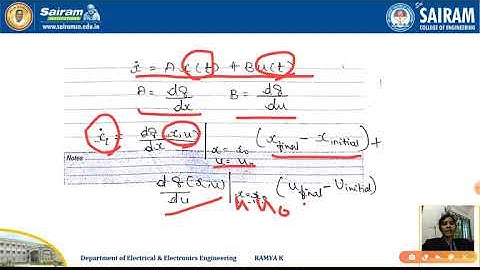 Sairam
INSTITUTIONS
www.sairamce.edu.in
Sri
SAIRAM
COLLEGE OF ENGINEERING
ẋ = A x(t) + B u(t)
A = dg/dx    B = dg/du
ẋᵢ = dg(x,u)/dx | x = x₀, u = u₀ (x_final − x_initial) +
Notes
dg(x,u)/du | (u_final − u_initial)
u u₀
Department of Electrical & Electronics Engineering    RAMYA K